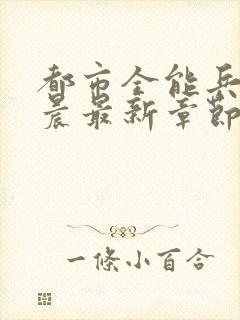 都市全能兵
晨最新章節
一條小百合